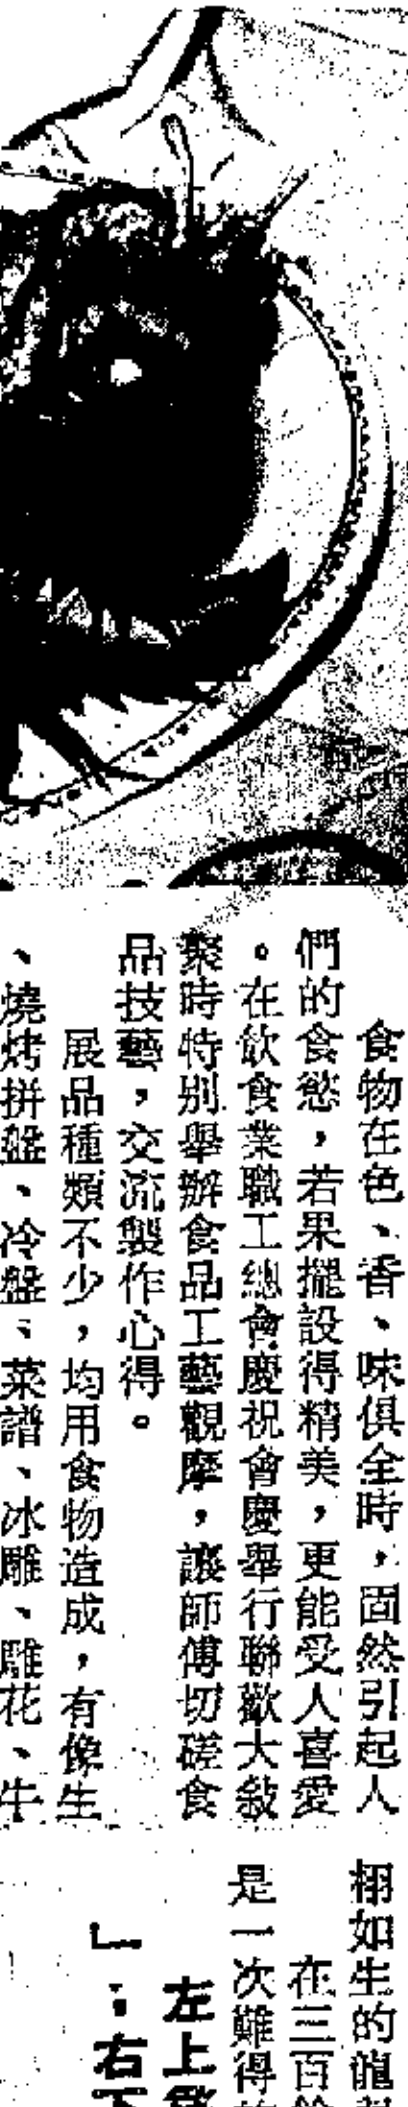 食物在色、香、味俱全時，固然引起人
們的食慾，若果擺設得精美，更能受人喜愛
。在飲食業職工總會慶祝會慶舉行聯歡大敍
聚時特別舉辦食品工藝觀摩，讓師傅切磋食
品技藝，交流製作心得。
展品種類不少，均用食物造成，有像生
、燒烤拼盤、冷盤、菜譜、冰雕、雕花、牛
栩如生的龍
在三百
是一次難得
左上
」；右下